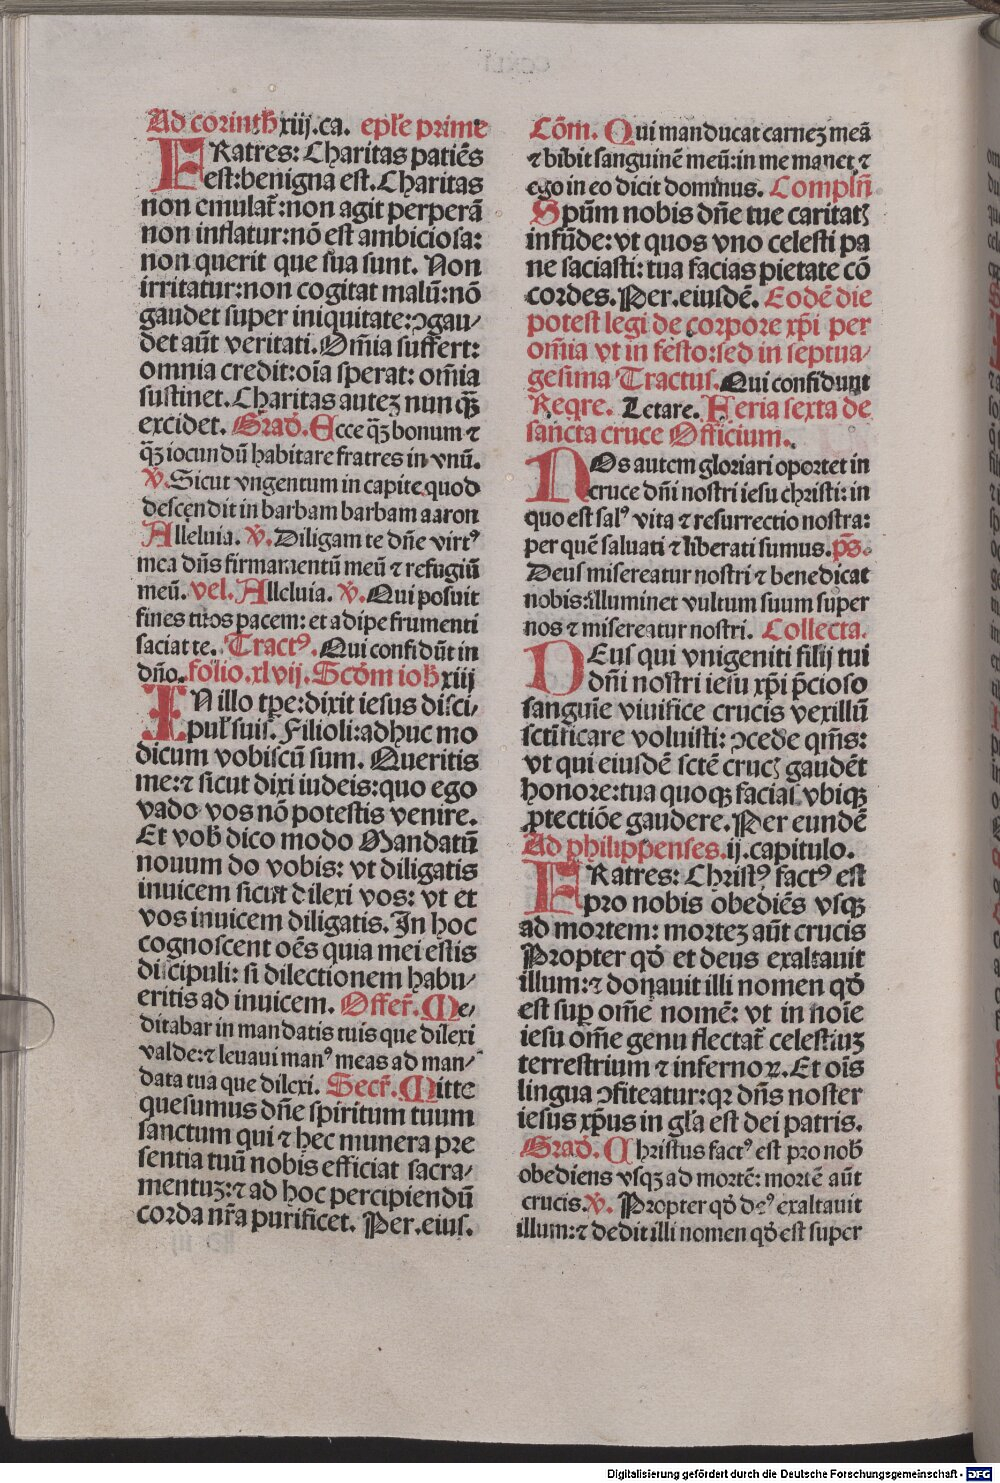 Ad corinth̄ xiij.ca. ep̄le prime
FRatres: Charitas patiēs
est:benigna est.Charitas
non emulat̄:non agit perperā
non inflatur:nō est ambiciosa:
non querit que sua sunt. Non
irritatur:non cogitat malū:nō
gaudet super iniquitate:ↄgau⸗
det aūt veritati.Om̄ia suffert:
omnia credit:oīa sperat: om̄ia
sustinet.Charitas auteꝫ nun qᷓꝫ
excidet. Grad̄. Ecce qᷓꝫ bonum ⁊
qᷓꝫ iocundū habitare fratres in vnū.
℣. Sicut vngentum in capite quod
descendit in barbam barbam aaron
Alleluia. ℣. Diligam te dn̄e virtꝰ
mea dn̄s firmamentū meū ⁊ refugiū
meū. vel. Alleluia. ℣. Qui posuit
fines tuos pacem: et adipe frumenti
saciat te. Tractꝰ. Qui confidūt in
dn̄o. folio.xlvij. Scd̄m ioh̄ xiij
IN illo tp̄e:dixit iesus disci⸗
pul̄ suis. Filioli:adhuc mo
dicum vobiscū sum. Queritis
me:⁊ sicut dixi iudeis:quo ego
vado vos nō potestis venire.
Et vob̄ dico modo Mandatū
nouum do vobis: vt diligatis
inuicem sicut dilexi vos: vt et
vos inuicem diligatis. In hoc
cognoscent oēs quia mei estis
discipuli: si dilectionem habu⸗
eritis ad inuicem. Offer̄. Me⸗
ditabar in mandatis tuis que dilexi
valde:⁊ leuaui manꝰ meas ad man⸗
data tua que dilexi. Secr̄. Mitte
quesumus dn̄e spiritum tuum
sanctum qui ⁊ hec munera pre
sentia tuū nobis efficiat sacra⸗
mentuꝫ:⁊ ad hoc percipiendū
corda nr̄a purificet. Per.eius.
Cōm. Qui manducat carneꝫ meā
⁊ bibit sanguinē meū:in me manet ⁊
ego in eo dicit dominus. Compln̄
Spūm nobis dn̄e tue caritatꝭ
infūde:vt quos vno celesti pa
ne saciasti:tua facias pietate cō
cordes.Per.eiusdē. Eodē die
potest legi de corpore xp̄i per
om̄ia vt in festo:sed in septua⸗
gesima Tractus. Qui confidunt
Reqre. Letare. Feria sexta de
sancta cruce Officium.
NOs autem gloriari oportet in
cruce dn̄i nostri iesu christi: in
quo est salꝰ vita ⁊ resurrectio nostra:
per quē saluati ⁊ liberati sumus. p̄s.
Deus misereatur nostri ⁊ benedicat
nobis:illuminet vultum suum super
nos ⁊ misereatur nostri. Collecta.
DEus qui vnigeniti filij tui
dn̄i nostri iesu xp̄i p̄cioso
sanguīe viuifice crucis vexillū
sctīficare voluisti: ↄcede qm̄s:
vt qui eiusdē sctē crucꝭ gaudēt
honore:tua quoqꝫ faciaſ vbiqꝫ
ꝓtectiōe gaudere.Per eundē
Ad philippenses.ij.capitulo.
FRatres: Christꝰ factꝰ est
pro nobis obediēs vsqꝫ
ad mortem: morteꝫ aūt crucis
Propter qd̄ et deus exaltauit
illum:⁊ donauit illi nomen qd̄
est suꝑ om̄e nomē: vt in noīe
iesu om̄e genu flectat̄ celestiuꝫ
terrestrium ⁊ infernoꝝ.Et oīs
lingua ↄfiteatur:qꝛ dn̄s noster
iesus xp̄us in gl̄a est dei patris.
Grad̄. Christus factꝰ est pro nob̄
obediens vsqꝫ ad mortē: mortē aūt
crucis. ℣. Propter qd̄ deꝰ exaltauit
illum:⁊ dedit illi nomen qd̄ est super
Digitalisierung gefördert durch die Deutsche Forschungsgemeinschaft - DFG